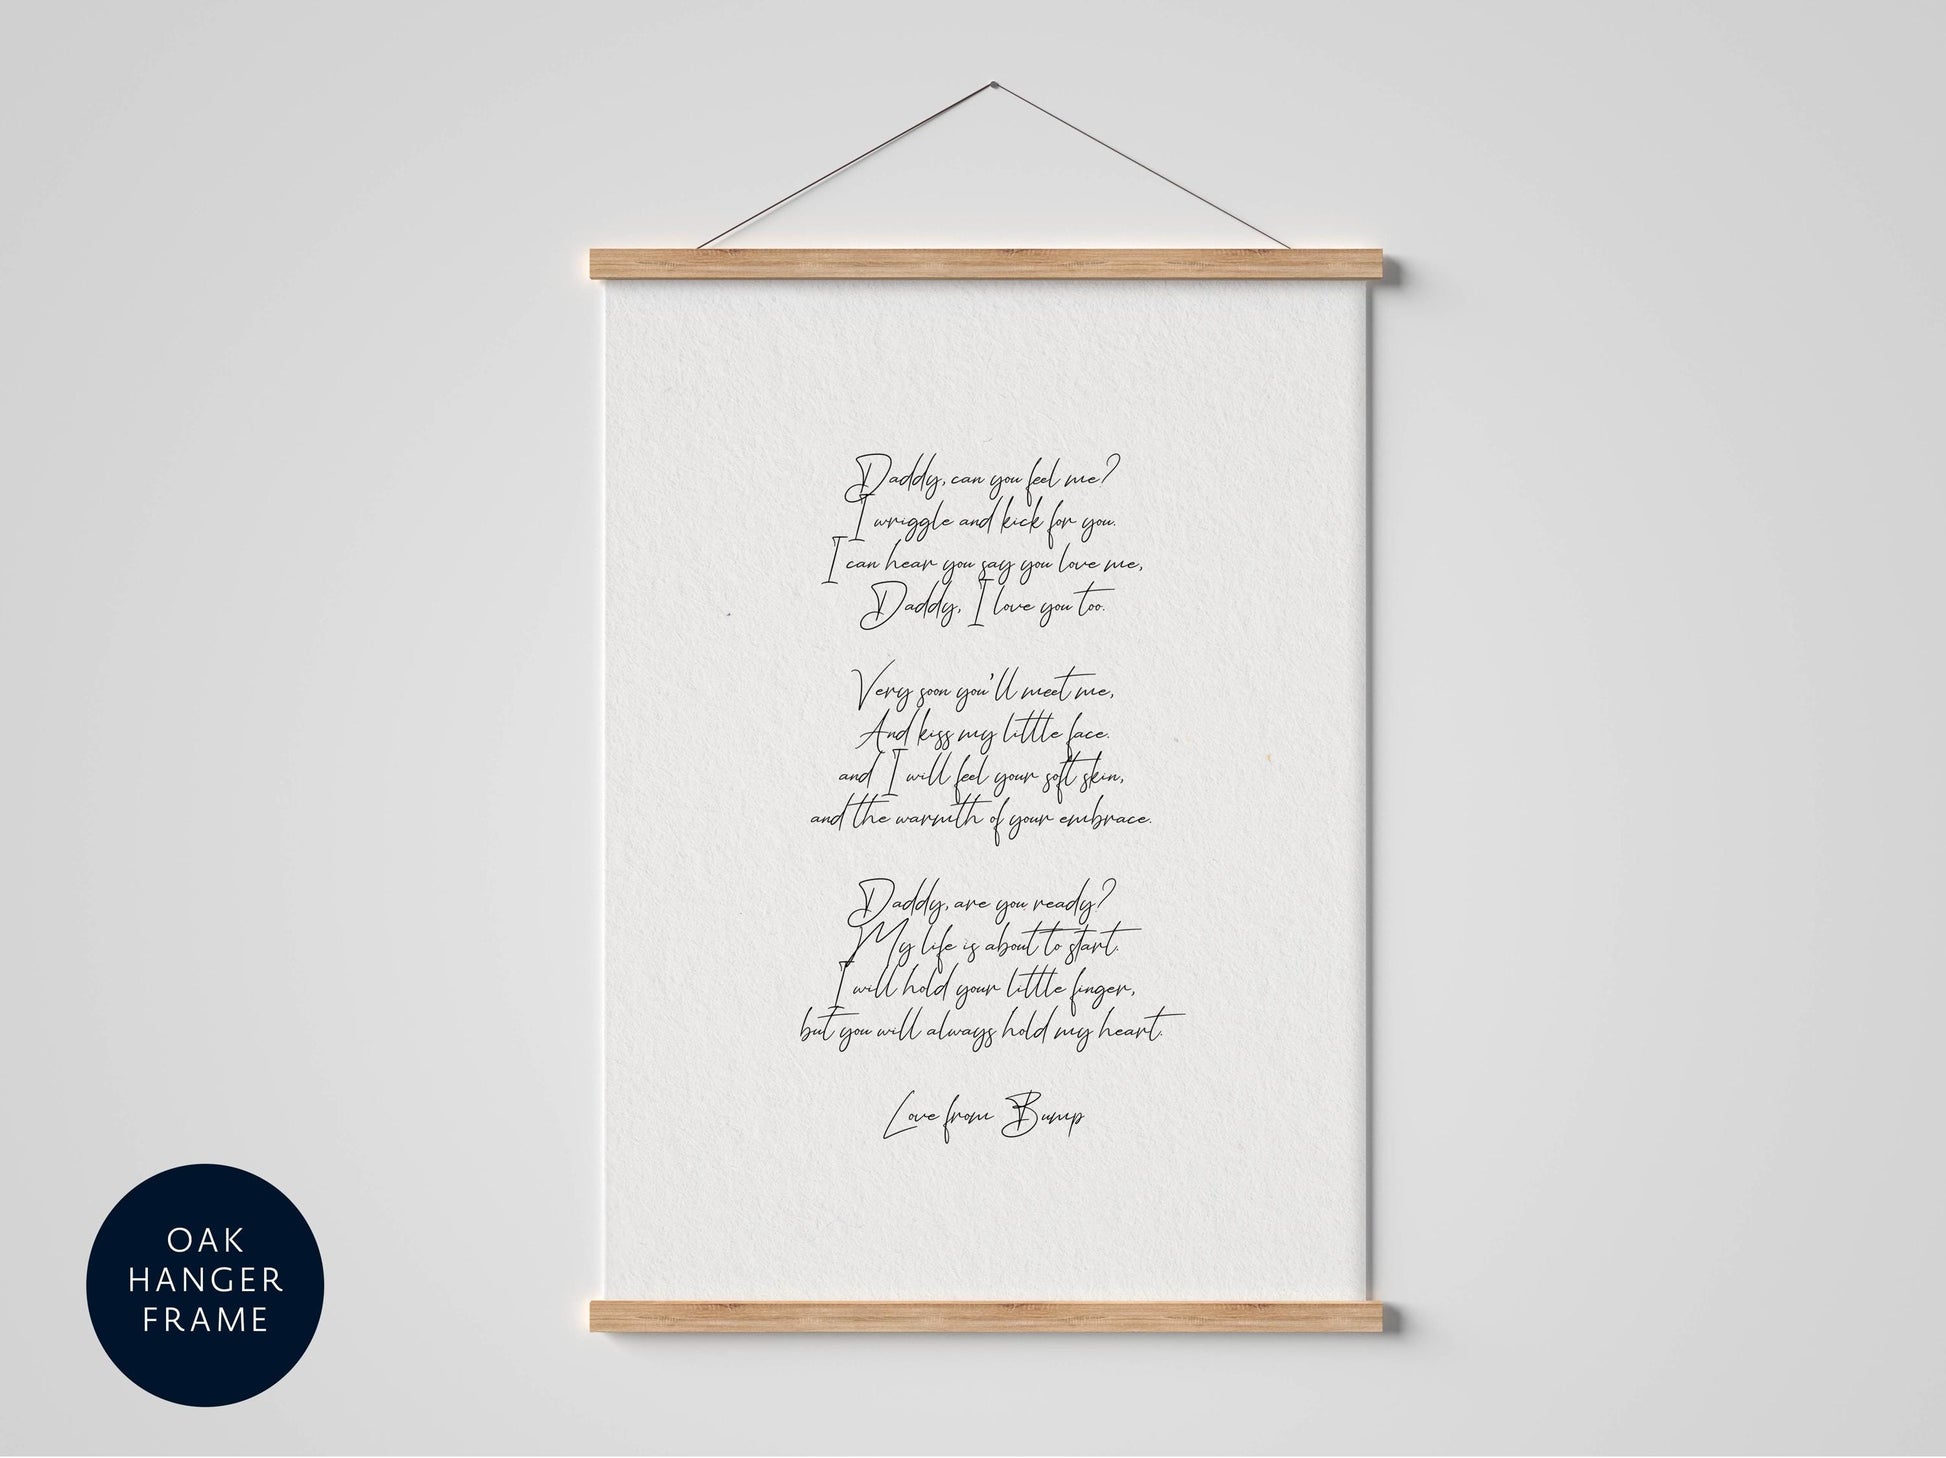 Daddy, can you feel me?
I wriggle and kick for you.
I can hear you say you love me,
Daddy, I love you too.
Very soon you'll meet me,
And kiss my little face.
and I will feel your soft skin,
and the warmth of your embrace.
Daddy, are you ready?
My life is about to start.
I will hold your little finger,
but you will always hold my heart.
Love from Bump
OAK
HANGER
FRAME